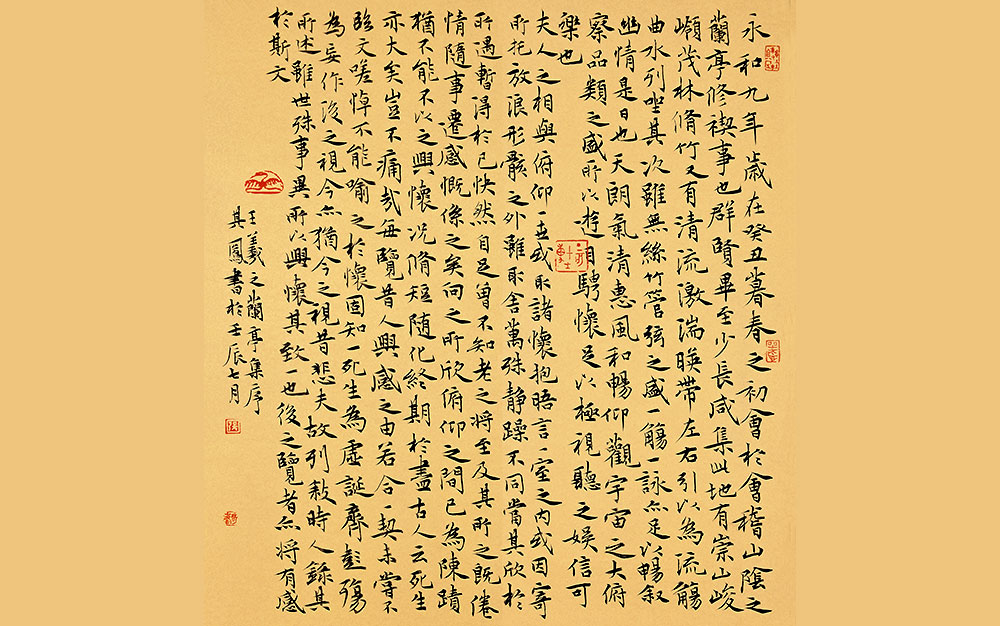 永和九年歲在癸丑暮春之初會於會稽山陰之
蘭亭修禊事也群賢畢至少長咸集此地有崇山峻
嶺茂林脩竹又有清流激湍暎帶左右引以為流觴
曲水列坐其次雖無絲竹管弦之盛一觴一詠亦足以暢叙
幽情是日也天朗氣清惠風和暢仰觀宇宙之大俯
察品類之盛所以遊目騁懷足以極視聽之娛信可
樂也
夫人之相與俯仰一世或取諸懷抱晤言一室之內或因寄
所托放浪形骸之外雖取舍萬殊静躁不同當其欣於
所遇暫得於己快然自足曾不知老之將至及其所之既倦
情隨事遷感慨係之矣向之所欣俯仰之間已為陳蹟
猶不能不以之興懷況脩短隨化終期於盡古人云死生
亦大矣豈不痛哉每覽昔人興感之由若合一契未嘗不
臨文嗟悼不能喻之於懷固知一死生為虛誕齊彭殤
為妄作後之視今亦猶今之視昔悲夫故列敘時人錄其
所述雖世殊事異所以興懷其致一也後之覽者亦將有感
於斯文
王羲之蘭亭集序
其鳳書於壬辰七月